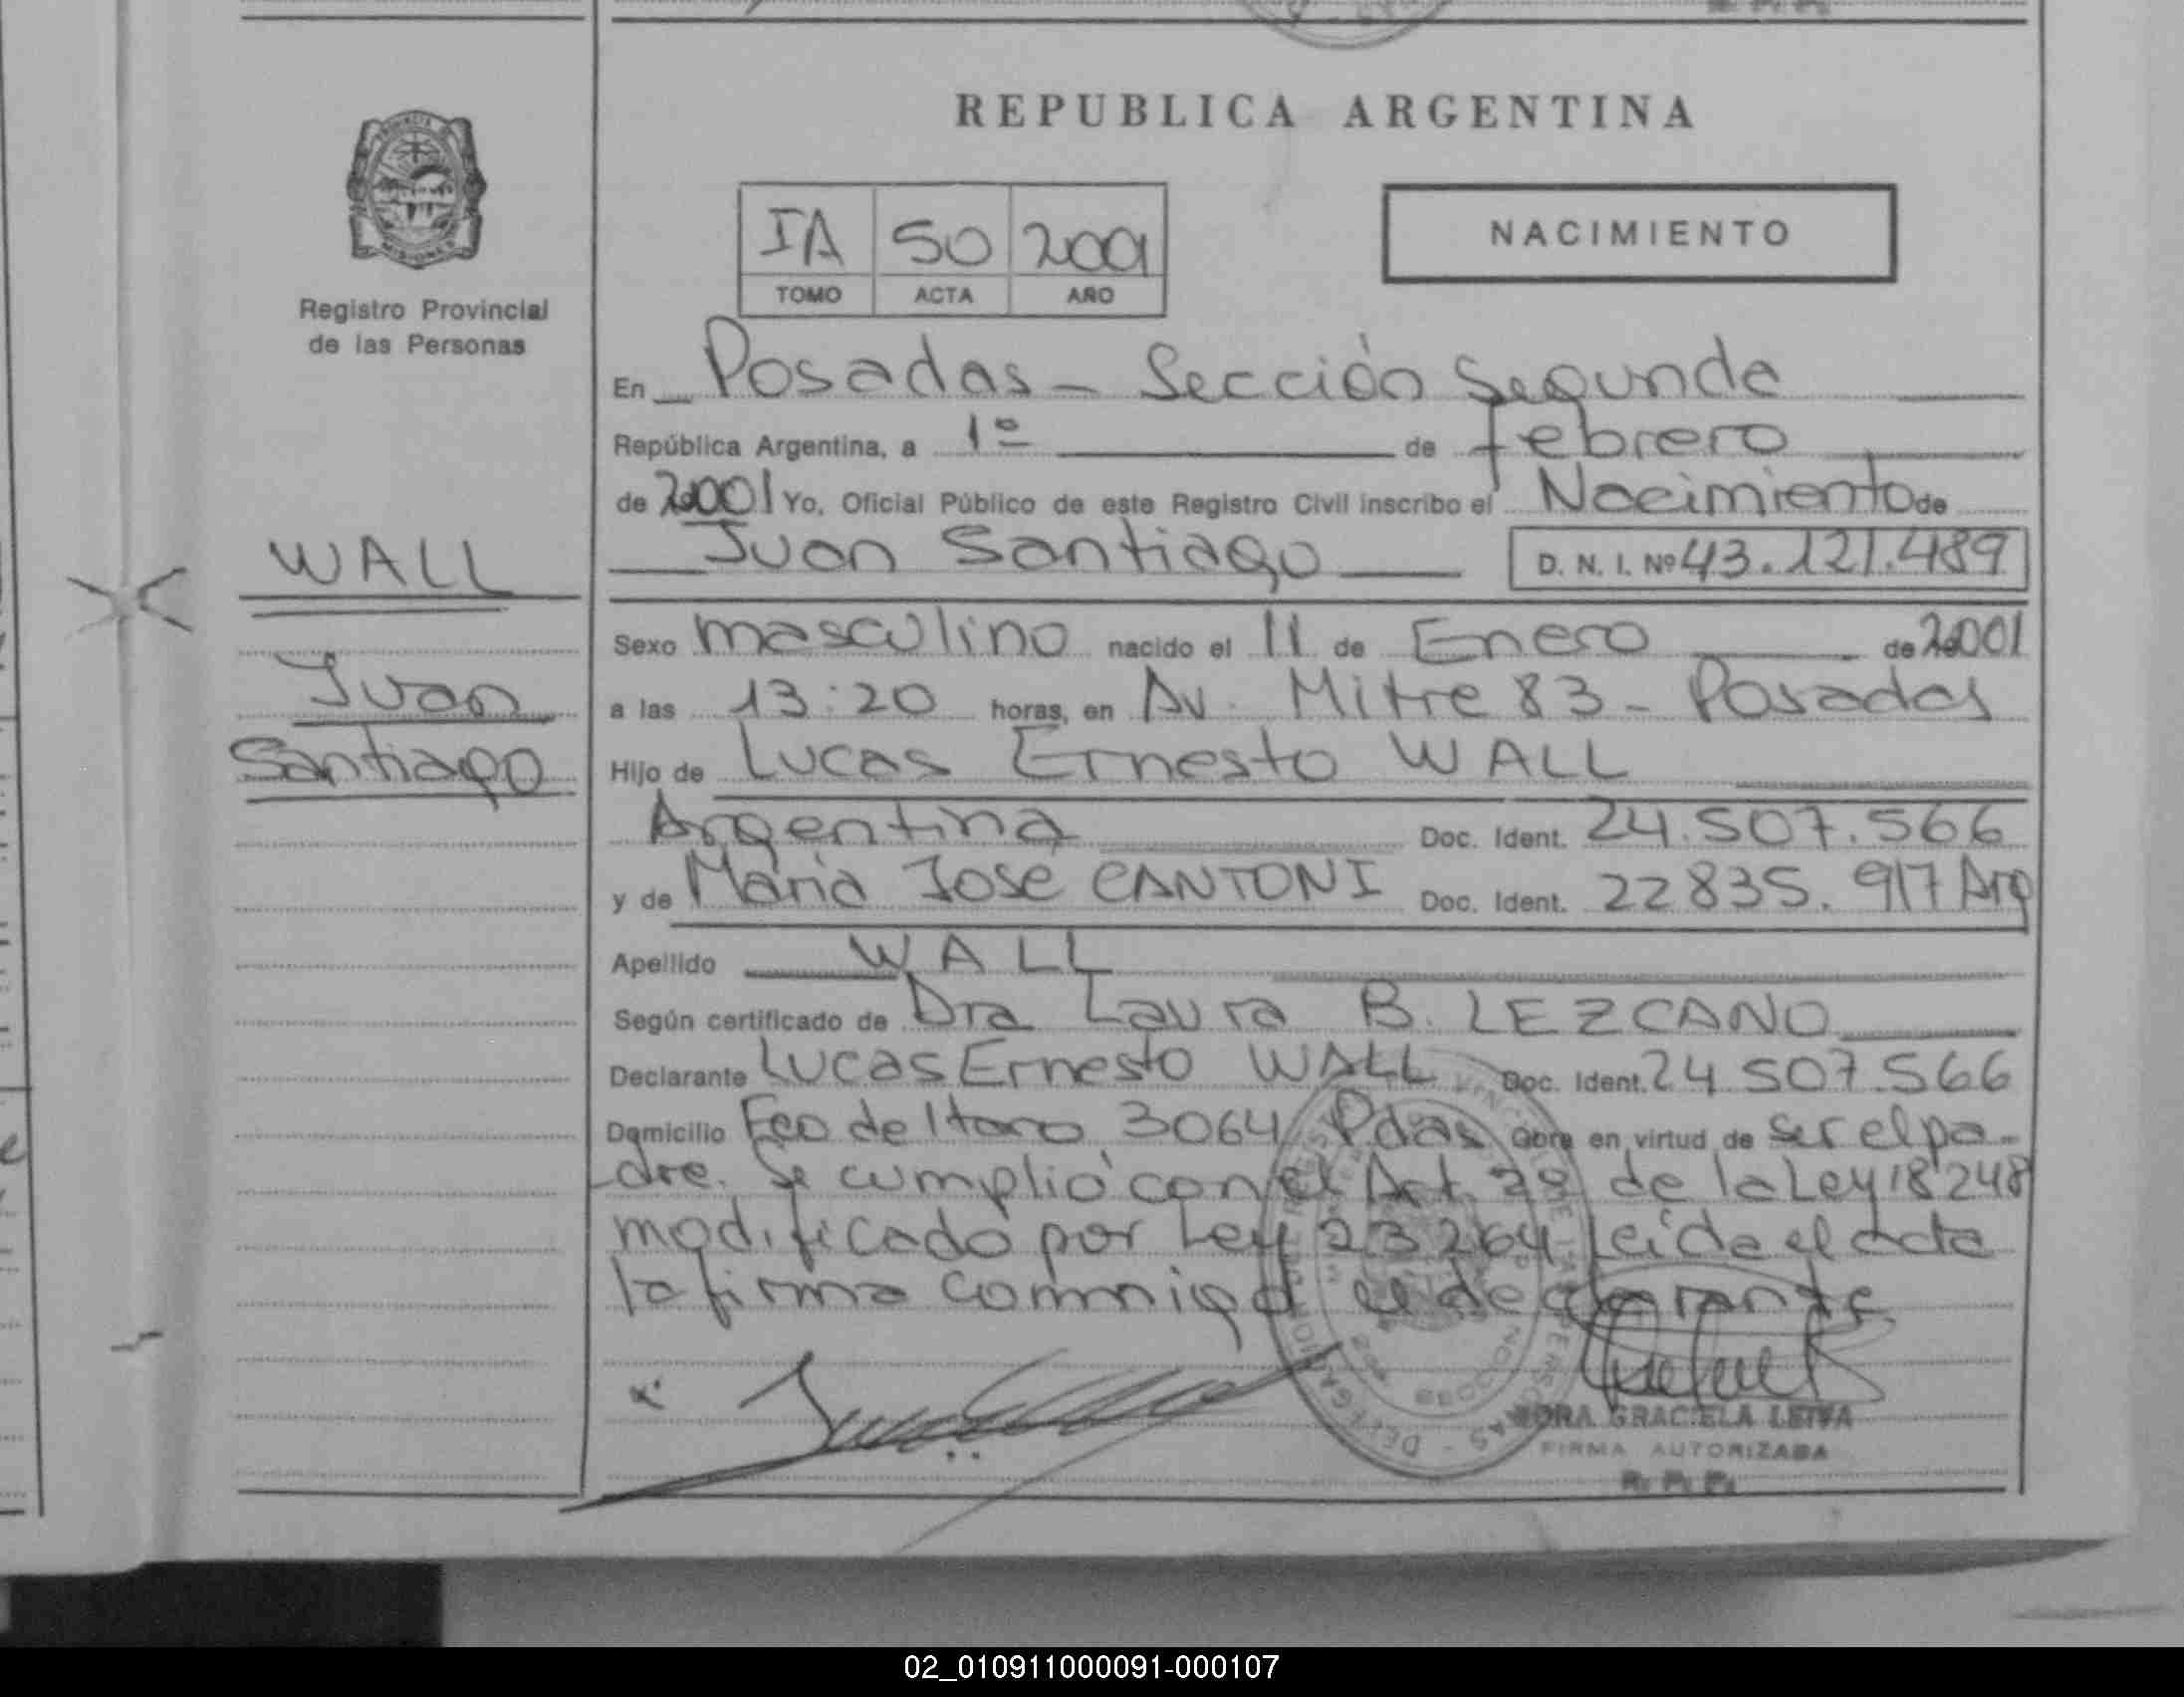 REPUBLICA ARGENTINA
Registro Provincial
de las Personas
IA 50 2001
TOMO ACTA AÑO
NACIMIENTO
En Posadas - Sección Segunda
República Argentina, a 1º de febrero
de 2001 Yo, Oficial Público de este Registro Civil inscribo el Nacimiento de
Juan Santiago D. N. I. Nº 43.121.489
WALL
Juan
Santiago
Sexo masculino nacido el 11 de Enero de 2001
a las 13:20 horas, en Av. Mitre 83 - Posadas
Hijo de Lucas Ernesto WALL
Argentina Doc. Ident. 24.507.566
y de Maria Jose CANTONI Doc. Ident. 22835.917 Arg
Apellido WALL
Según certificado de Dra Laura B. LEZCANO
Declarante Lucas Ernesto WALL Doc. Ident. 24 507.566
Domicilio Fco de Haro 3064 Pdas Obra en virtud de ser el pa-
dre. Se cumplió con el Art. de la Ley 18248
modificado por Ley 23264 Leida el acta
la firma conmigo el declarante
GRACIELA LEIVA
FIRMA AUTORIZADA
R. P. P.
02_010911000091-000107